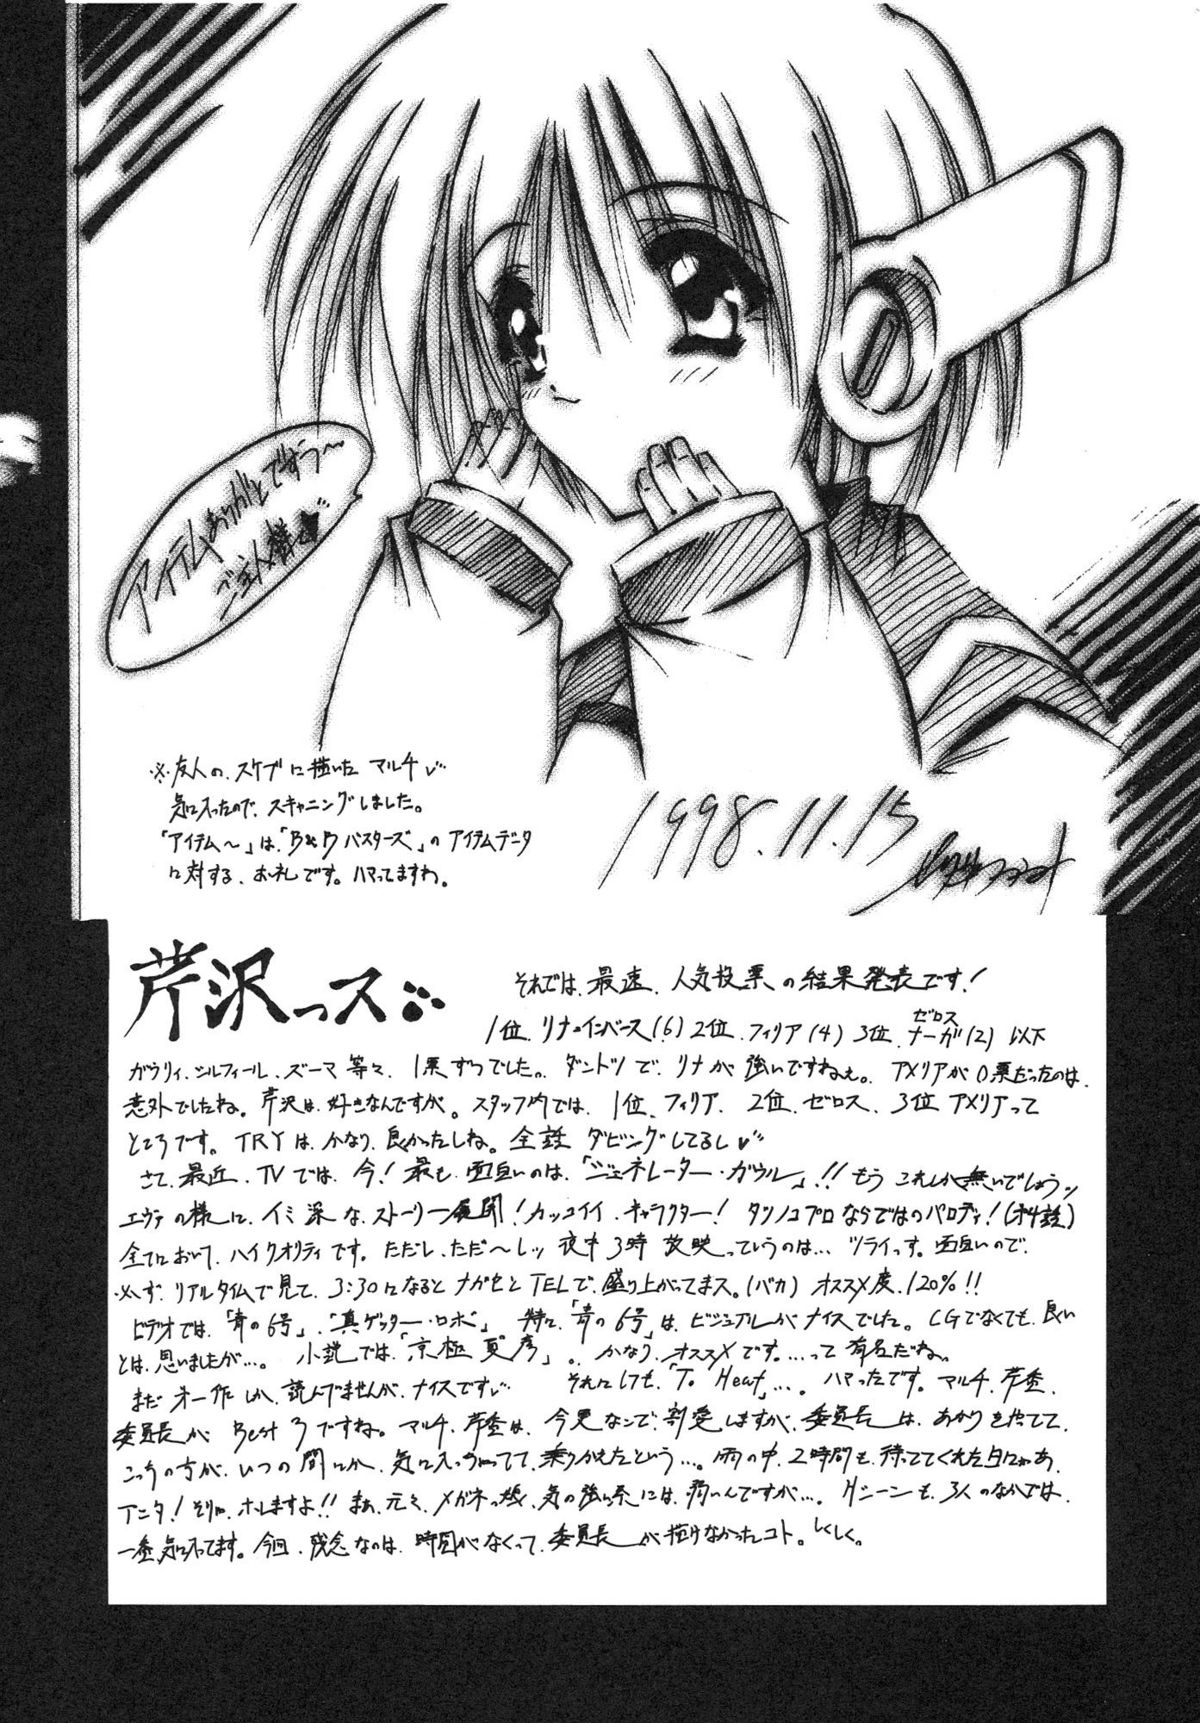 アイテムありがとですぅ〜
ご主人様
※友人の、スケブに描いた マルチ
気に入ったので、スキャニングしました。
「アイテム〜」は、「B&Bバスターズ」の アイテムデータ
に対する、お礼です。ハマってますわ。
1998.11.15
芹沢っス
それでは、最速、人気投票の結果発表です!
1位、リナ=インバース(6) 2位、フィリア(4) 3位、ゼロス ナーガ(2) 以下
ガウリィ、シルフィール、ズーマ 等々、1票ずつでした。ダントツで、リナが強いですねぇ。アメリアが0票だったのは、
意外でしたね。芹沢は、好きなんですが。スタッフ内では、1位、フィリア、2位、ゼロス、3位 アメリアって
ところです。TRYは、かなり、良かったしね。全話 ダビングしてるし
さて、最近、TVでは、今!最も、面白いのは、「ジェネレーター・ガウル」!!もう これしか無いでしょうッ
エヴァの様に、イミ深な、ストーリー展開!カッコイイ、キャラクター!タツノコプロならではのパロディ!(オ4話)
全てにおいて、ハイクオリティです。ただし、ただ〜しッ 夜中3時 放映っていうのは…ツライっす。面白いので、
必ず、リアルタイムで見て、3:30になると ナガセとTELで、盛り上がってまス。(バカ) オススメ度、120%!!
ビデオでは、「青の6号」、「真ゲッター・ロボ」 特に、「青の6号」は、ビジュアルがナイスでした。CGでなくても、良い
とは、思いましたが…。小説では、「京極 夏彦」。かなり、オススメです。…って 有名だね。
まだ オ一作しか、読んでませんが、ナイスです それにしても、「To Heart」…。ハマったです。マルチ、芹香、
委員長が Best 3ですね。マルチ、芹香は、今更なんで、割愛しますが、委員長は、あかりを捨てて、
こっちの方が、いつの間にか、気に入っちゃってて、乗りかえたという…。雨の中、2時間も、待っててくれた日にゃあ、
アニタ!そりゃ、ホレますよ!!まあ、元々、メガネっ娘、気の強い系には、弱いんですが…。Hシーンも、3人のなかでは、
一番 気に入ってます。今回、残念なのは、時間がなくって、委員長が描けなかったコト。しくしく。